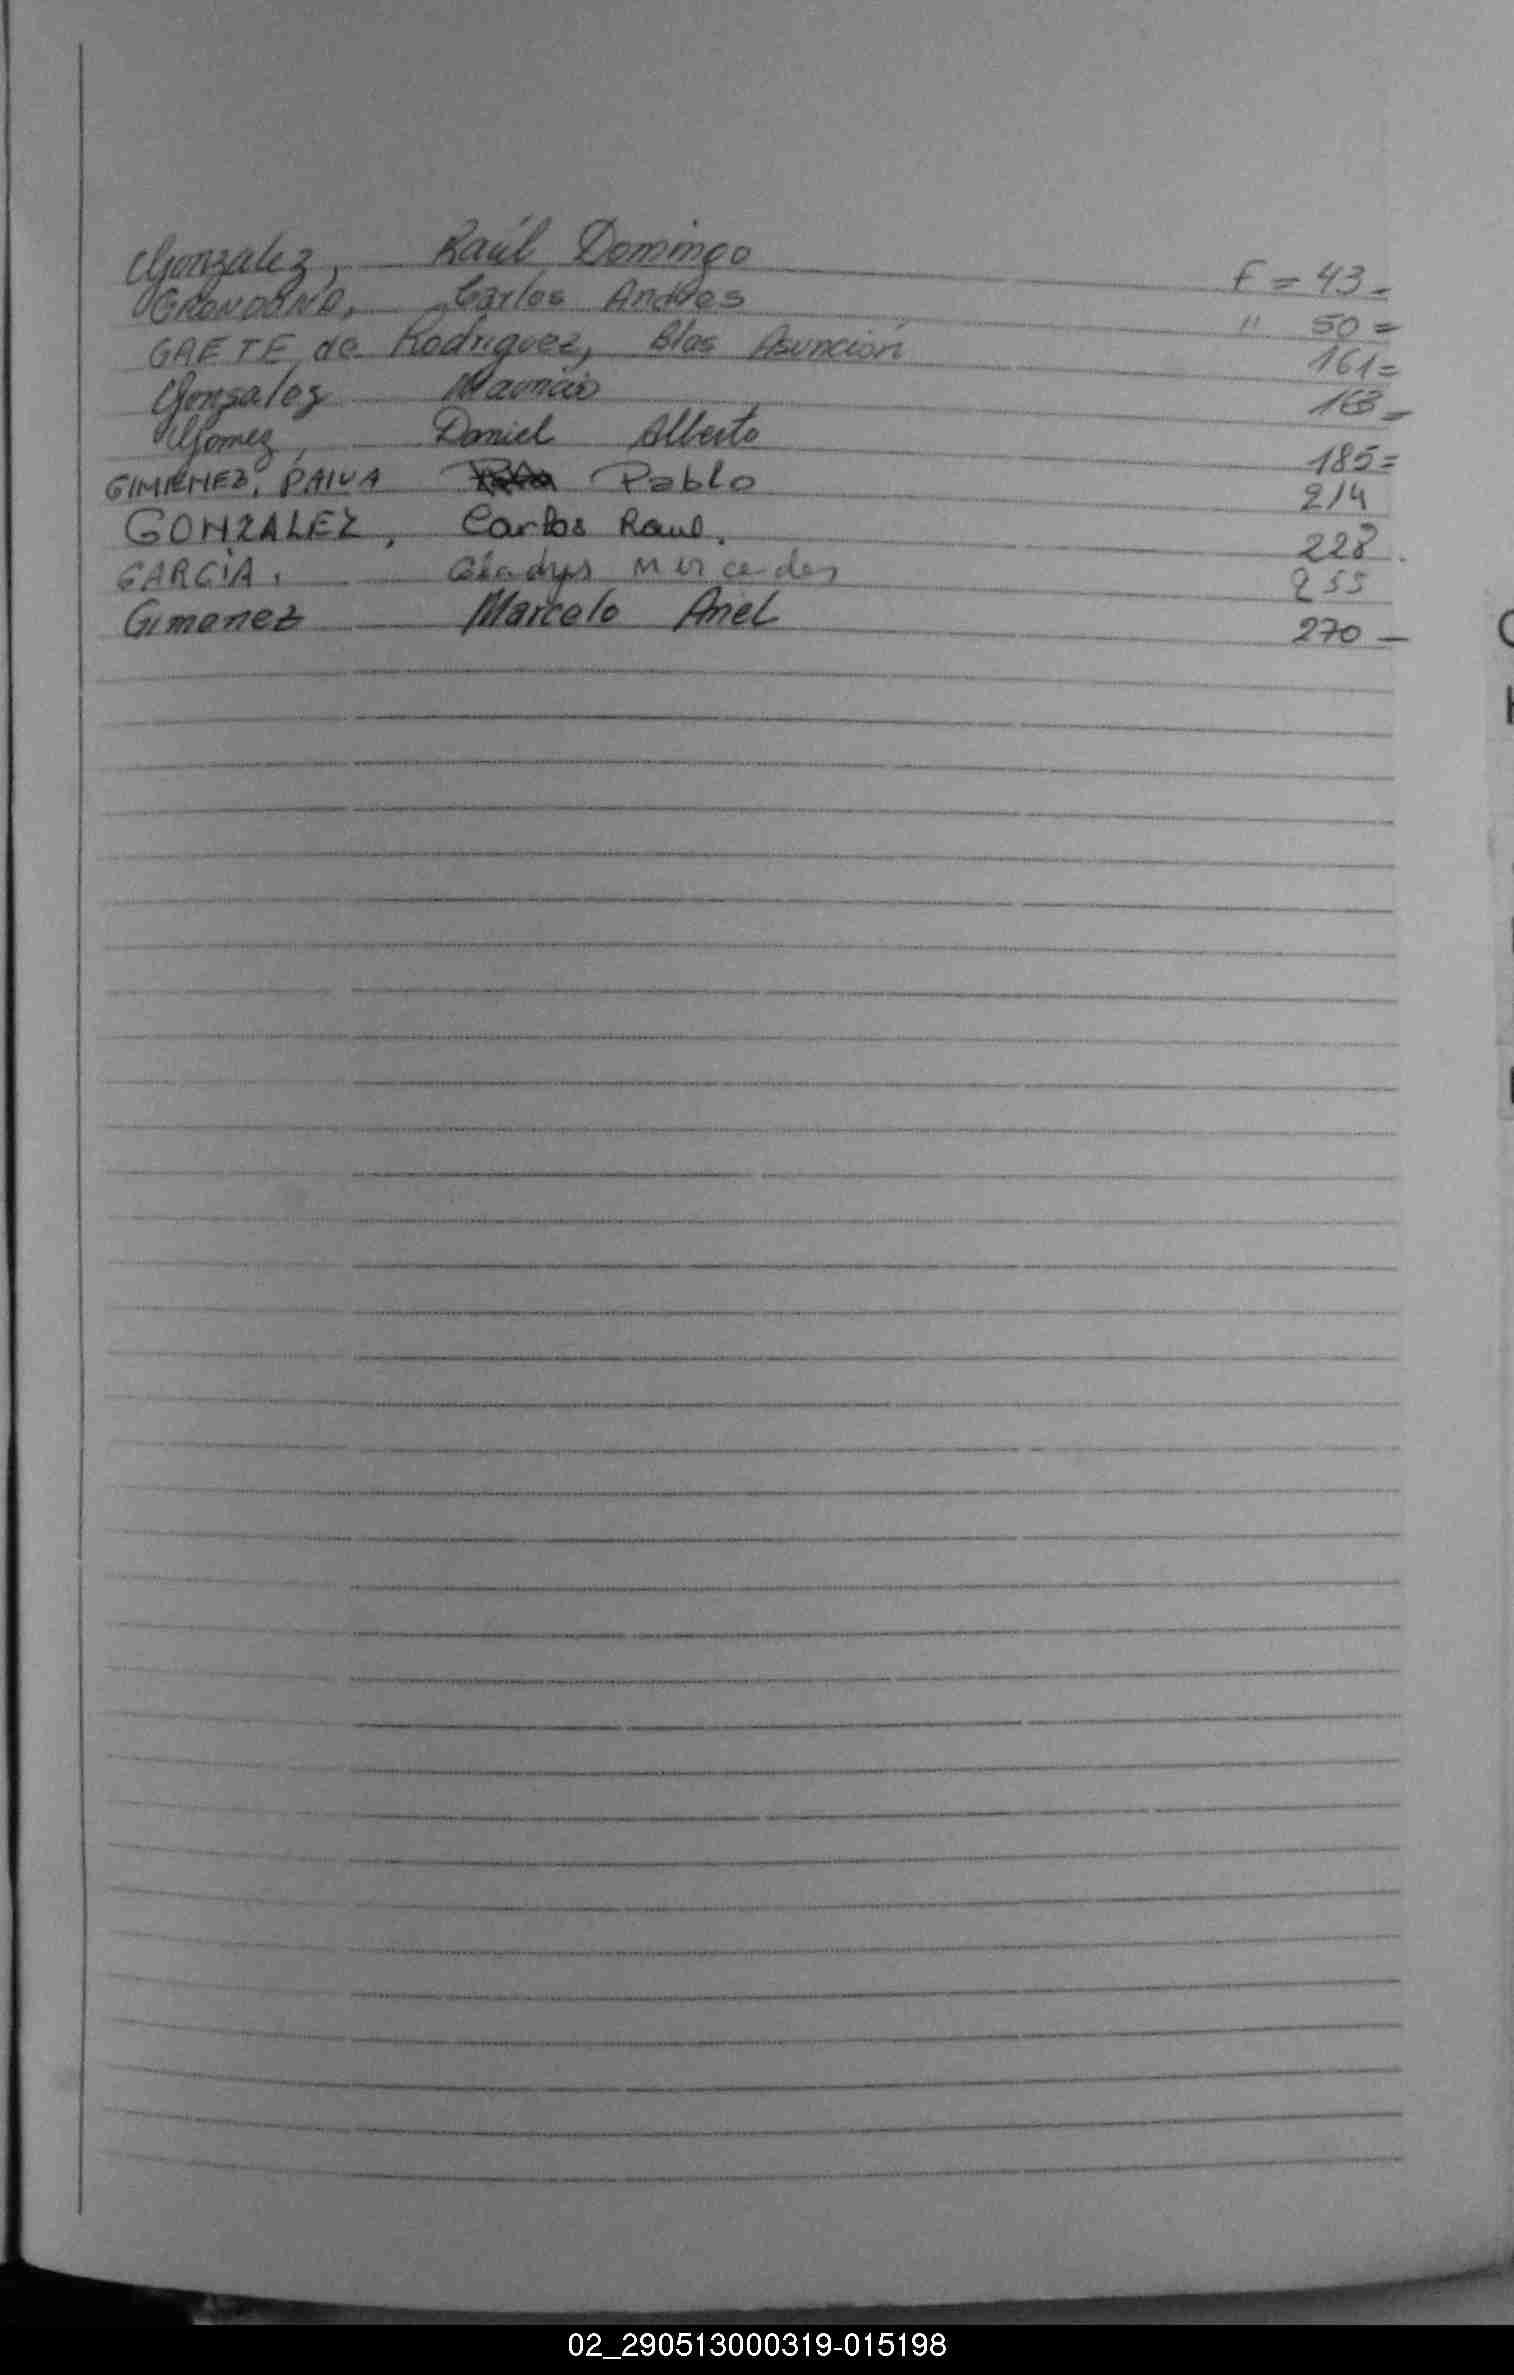 Gonzalez, Raúl Domingo F = 43 -
GRONDONA, Carlos Andres " 50 =
GAETE de Rodriguez, Blas Asunción 161 =
Gonzalez Mauricio 163 -
Gomez, Daniel Alberto 185 =
GIMENEZ, PAIVA Pablo 214
GONZALEZ, Carlos Raul. 228.
GARCIA, Gladys Mercedes 255
Gimenez Marcelo Ariel 270 -
02_290513000319-015198